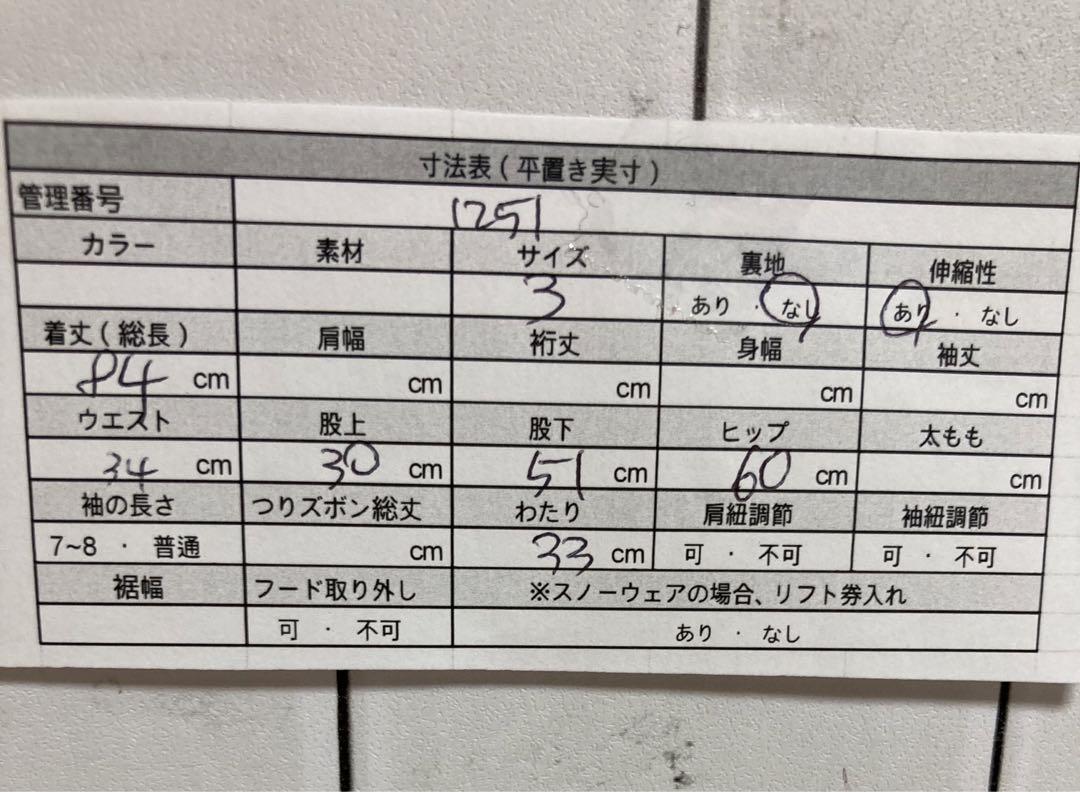 寸法表(平置き実寸)
管理番号 1251
カラー 素材 サイズ 裏地 伸縮性
3 あり ・ なし あり ・ なし
着丈(総長) 肩幅 裄丈 身幅 袖丈
84 cm cm cm cm cm
ウエスト 股上 股下 ヒップ 太もも
34 cm 30 cm 51 cm 60 cm cm
袖の長さ つりズボン総丈 わたり 肩紐調節 袖紐調節
7~8 ・ 普通 cm 33 cm 可 ・ 不可 可 ・ 不可
裾幅 フード取り外し ※スノーウェアの場合、リフト券入れ
可 ・ 不可 あり ・ なし